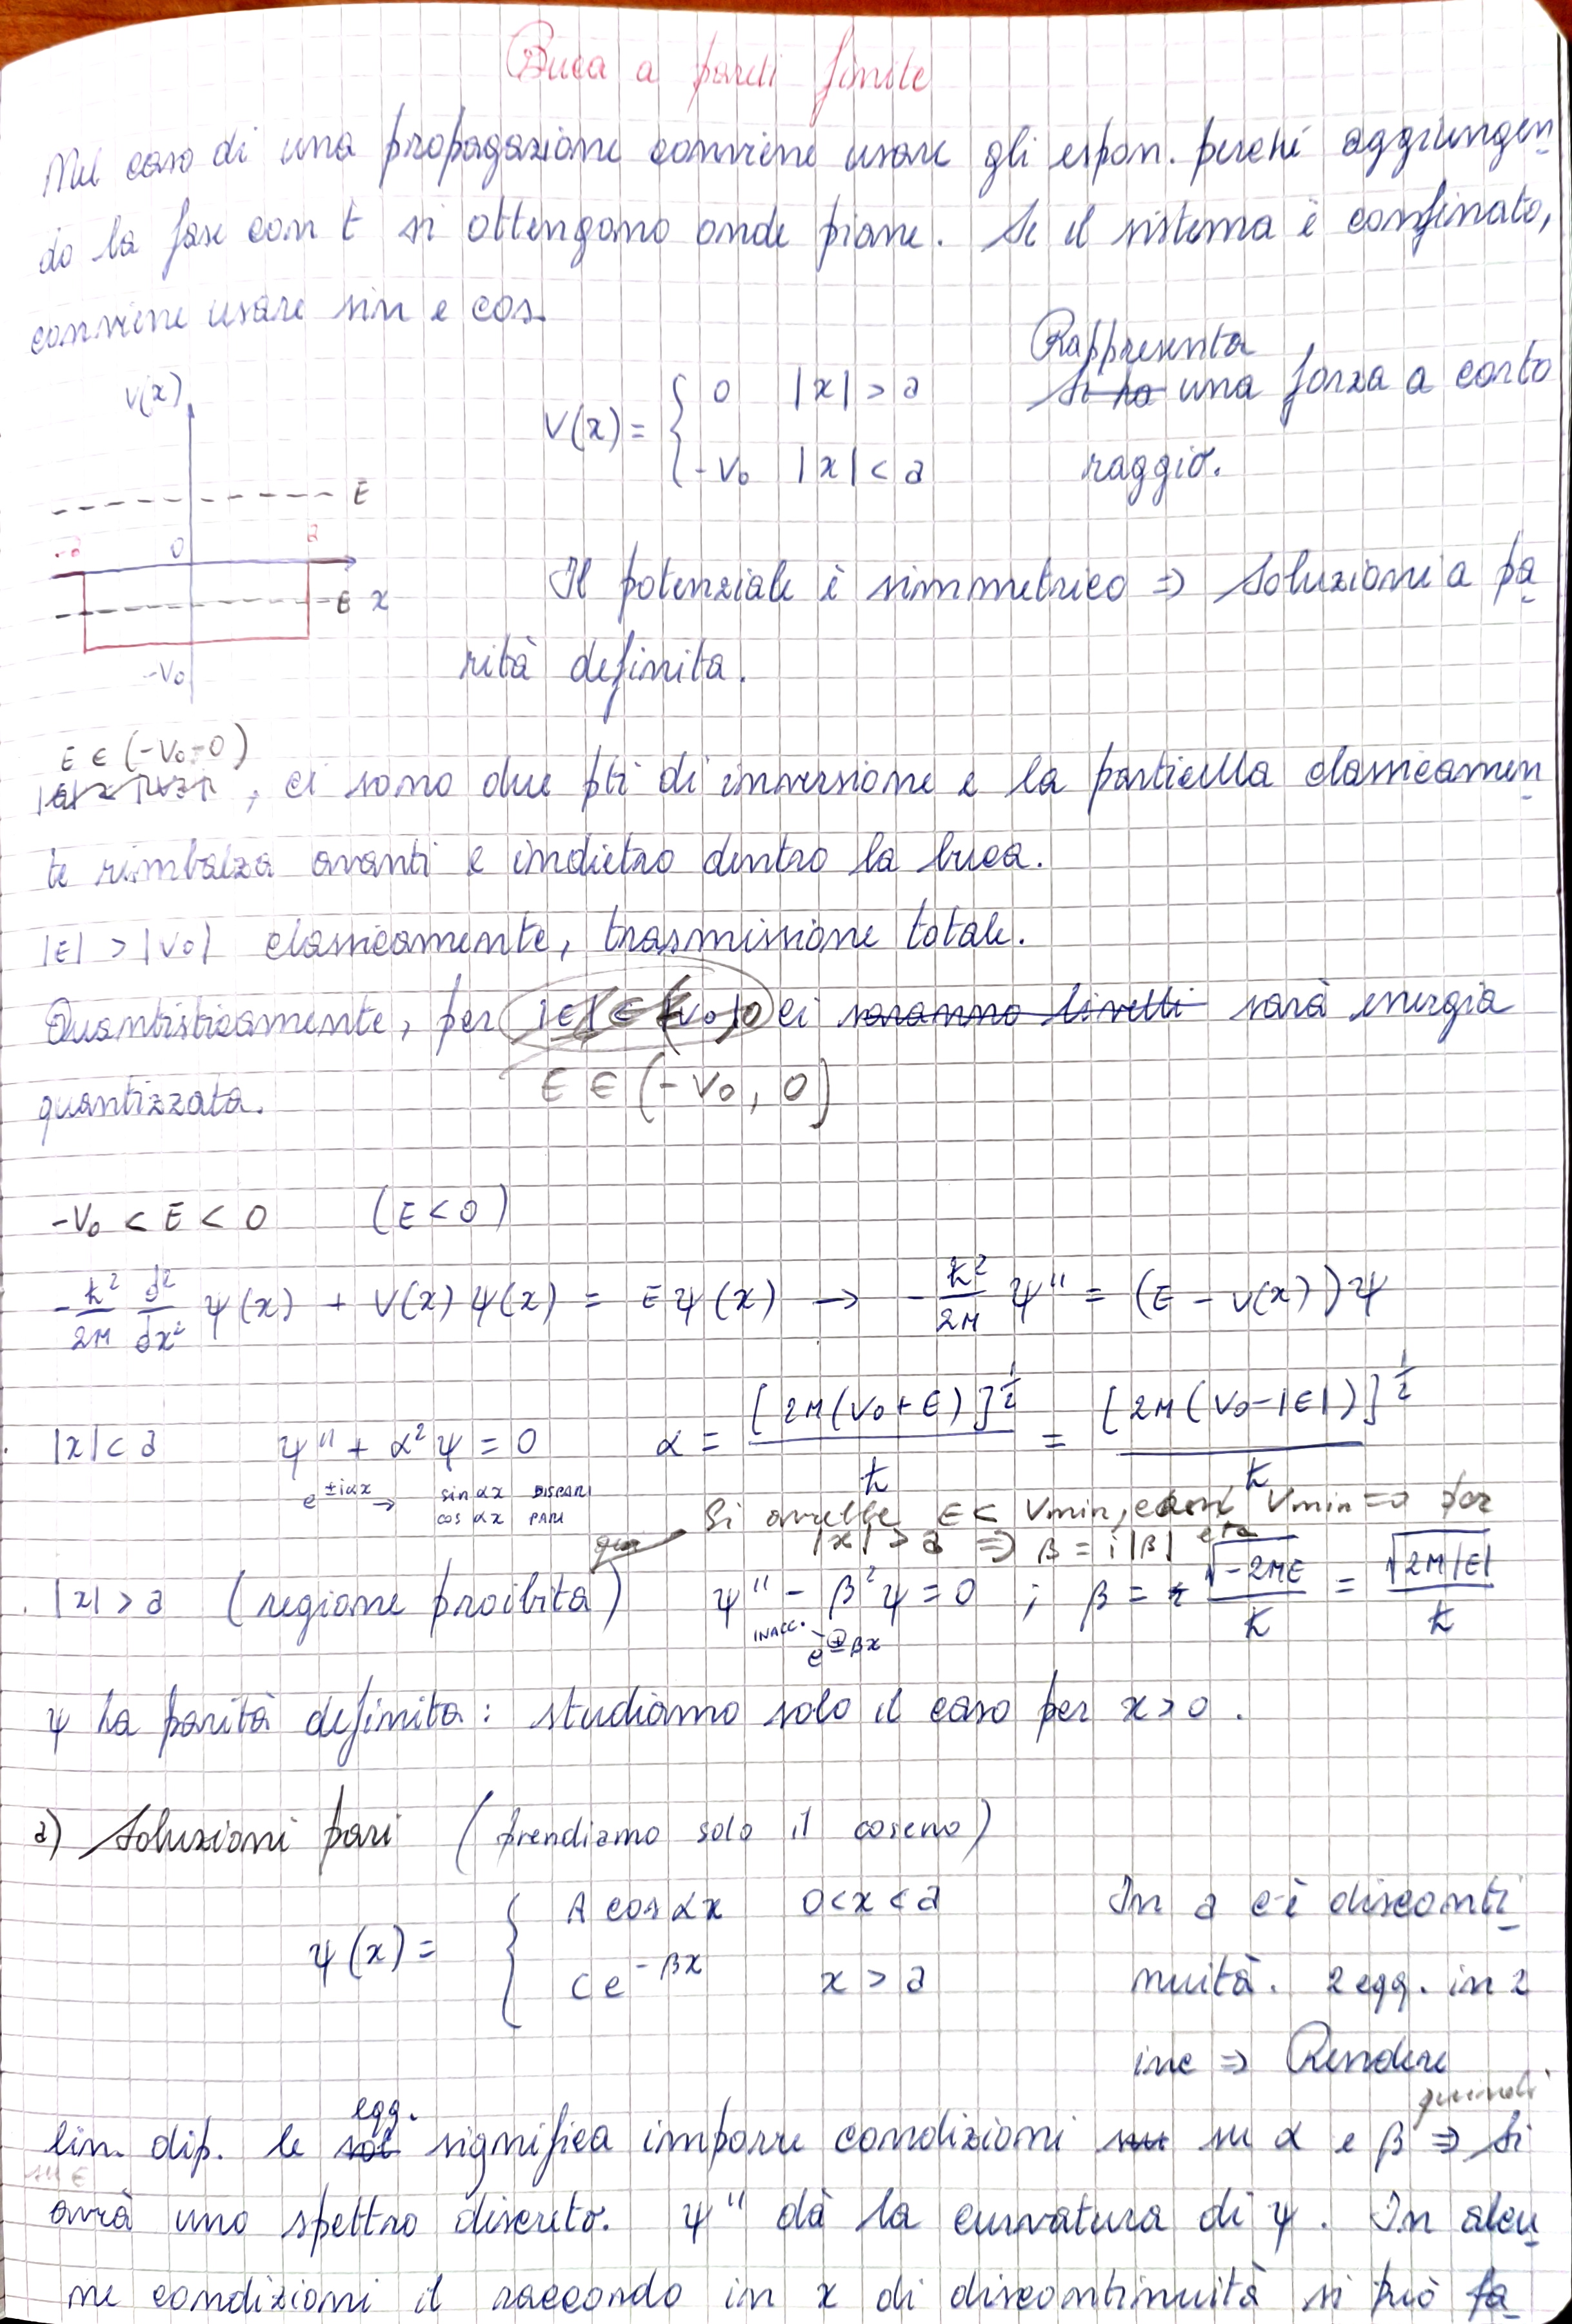 Buca a pareti finite
Nel caso di una propagazione conviene usare gli espon. perché aggiungen
do la fase con t si ottengono onde piane. Se il sistema è confinato,
conviene usare sin e cos.
V(x)
V(x) = { 0 |x| > a
-V₀ |x| < a
Rappresenta
Si ha una forza a corto
raggio.
E
-a 0 a
E x
-V₀
Il potenziale è simmetrico ⇒ soluzioni a pa
rità definita.
E ∈ (-V₀, 0)
, ci sono due pti di inversione e la particella classicamen
te rimbalza avanti e indietro dentro la buca.
|E| > |V₀| classicamente, trasmissione totale.
Quantisticamente, per |E| ∈ (V₀, 0) ci saranno livelli sarà energia
E ∈ (-V₀, 0)
quantizzata.
-V₀ < E < 0 (E < 0)
-ℏ²/2M d²/dx² ψ(x) + V(x) ψ(x) = E ψ(x) → -ℏ²/2M ψ'' = (E - V(x)) ψ
|x| < a ψ'' + α²ψ = 0 α = [2M(V₀+E)]^½/ℏ = [2M(V₀-|E|)]^½/ℏ
e^±iαx → sin αx DISPARI
cos αx PARI
Si avrebbe E < Vmin, Vmin = 0 per
|x| > a ⇒ β = i|β| etc
qui
|x| > a (regione proibita) ψ'' - β²ψ = 0 ; β = √-2ME/ℏ = √2M|E|/ℏ
INACC. e^±βx
ψ ha parità definita: studiamo solo il caso per x > 0.
a) Soluzioni pari (prendiamo solo il coseno)
ψ(x) = { A cos αx 0 < x < a
C e^-βx x > a
In a c'è disconti
nuità. 2 eqq. in 2
inc ⇒ Rendere
quindi
eqq.
lin. dip. le sol significa imporre condizioni su α e β ⇒ Si
su E
avrà uno spettro discreto. ψ'' dà la curvatura di ψ. In alcu
ne condizioni il raccordo in x di discontinuità si può fa